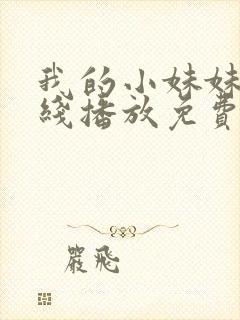 我的小妹妹
綫播放免費
嚴飛